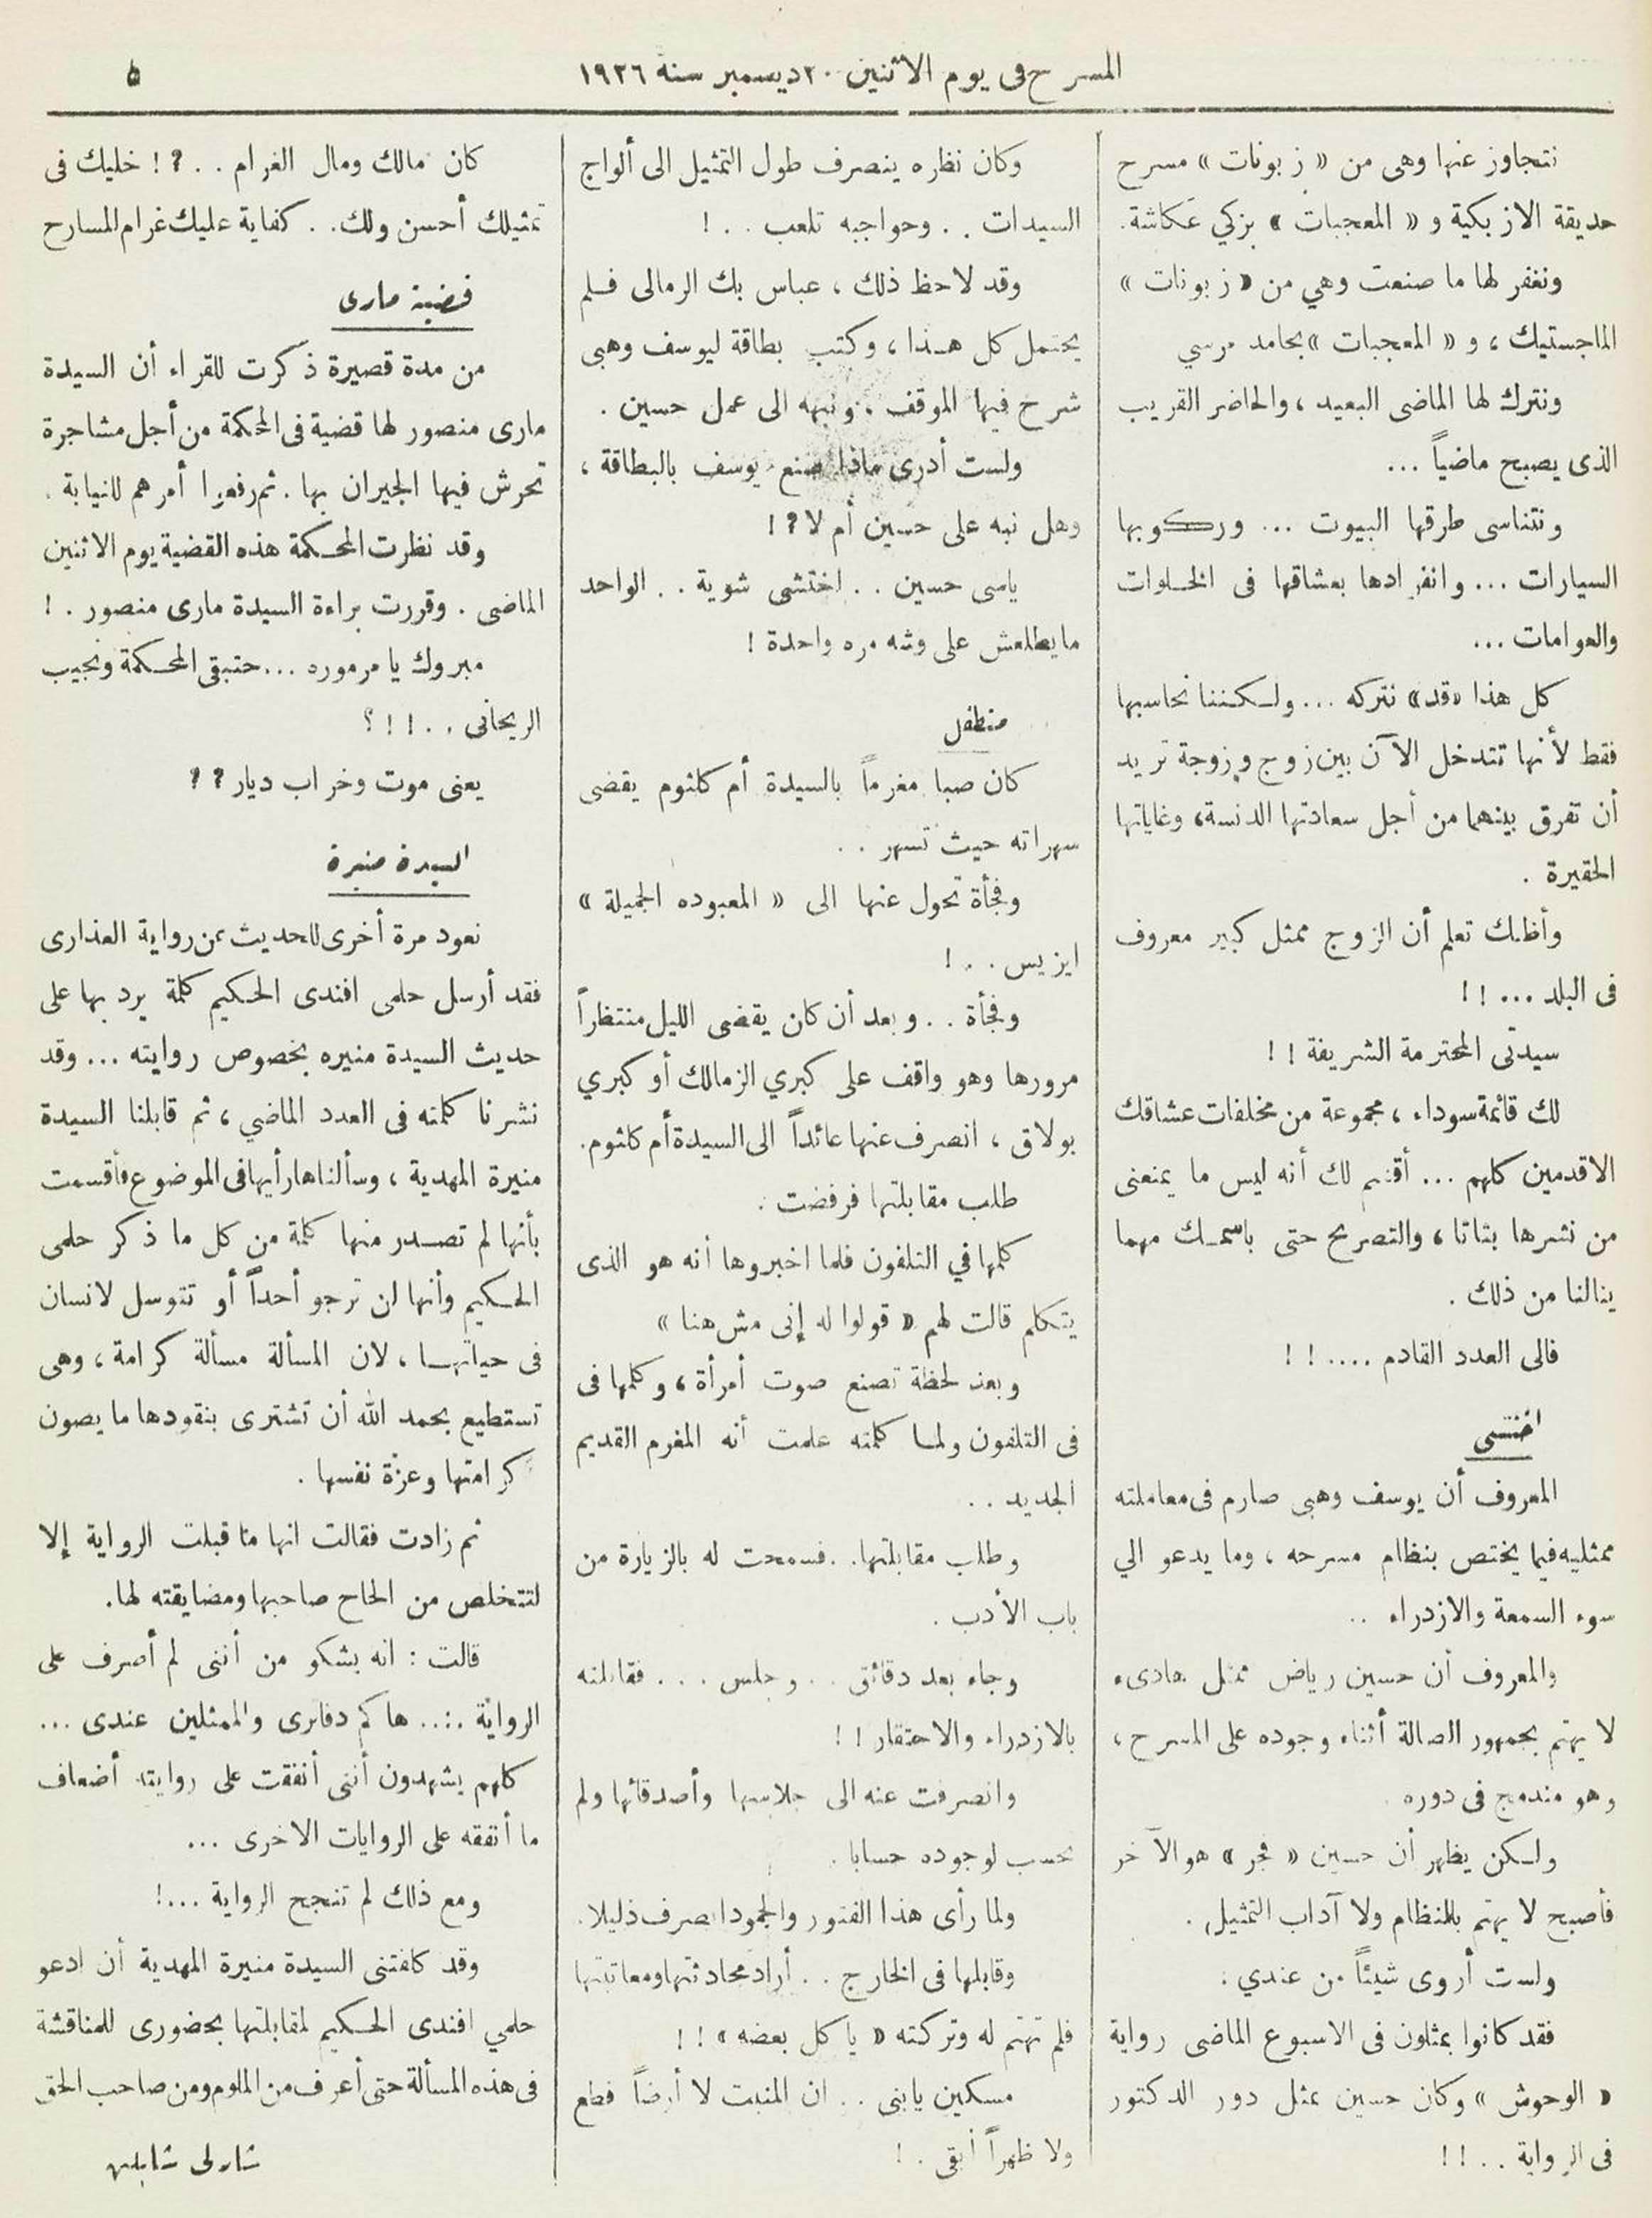 المسرح فى يوم الاثنين ٢٠ ديسمبر سنة ١٩٢٦
٥
نتجاوز عنها وهى من « زبونات » مسرح
حديقة الازبكية و « المعجبات » بزكي عكاشة.
ونغفر لها ما صنعت وهي من « زبونات »
الماجستيك ، و « المعجبات » بحامد مرسي
ونترك لها الماضى البعيد ، والحاضر القريب
الذى يصبح ماضياً ...
ونتناسى طرقها البيوت ... وركوبها
السيارات ... وانفرادها بعشاقها فى الخلوات
والعوامات ...
كل هذا «قد» نتركه ... ولكننا نحاسبها
فقط لأنها تتدخل الآن بين زوج وزوجة تريد
أن تفرق بينهما من أجل سعادتها الدنسة، وغاياتها
الحقيرة .
وأظنك تعلم أن الزوج ممثل كبير معروف
فى البلد ... ! !
سيدتى المحترمة الشريفة ! !
لك قائمة سوداء ، مجموعة من مخلفات عشاقك
الاقدمين كلهم ... أقسم لك أنه ليس ما يمنعنى
من نشرها بتاتا ، والتصريح حتى باسمك مهما
ينالنا من ذلك .
فالى العدد القادم .... ! !
اختشى
المعروف أن يوسف وهبى صارم فى معاملته
ممثليه فيما يختص بنظام مسرحه ، وما يدعو الي
سوء السمعة والازدراء ..
والمعروف أن حسين رياض ممثل هادىء
لا يهتم بجمهور الصالة أثناء وجوده على المسرح ،
وهو مندمج فى دوره .
ولكن يظهر أن حسين « فجر » هو الآخر
فأصبح لا يهتم بالنظام ولا آداب التمثيل .
ولست أروى شيئاً من عندي .
فقد كانوا يمثلون فى الاسبوع الماضى رواية
« الوحوش » وكان حسين يمثل دور الدكتور
فى الرواية . . ! !
وكان نظره ينصرف طول التمثيل الى ألواج
السيدات . . وحواجبه تلعب . . !
وقد لاحظ ذلك ، عباس بك الرمالى فلم
يحتمل كل هذا ، وكتب بطاقة ليوسف وهبى
شرح فيها الموقف . ونبهه الى عمل حسين .
ولست أدرى ماذا صنع يوسف بالبطاقة ،
وهل نبه على حسين أم لا ? !
ياسى حسين . . اختشى شوية . . الواحد
مايطلعش على وشه مره واحدة !
متطفل
كان صبا مغرماً بالسيدة أم كلثوم يقضى
سهراته حيث تسهر . .
وفجأة تحول عنها الى « المعبوده الجميلة »
ايزيس . . !
وفجأة . . وبعد أن كان يقضى الليل منتظراً
مرورها وهو واقف على كبري الزمالك أو كبري
بولاق ، انصرف عنها عائداً الى السيدة أم كلثوم.
طلب مقابلتها فرفضت .
كلمها في التلفون فلما اخبروها أنه هو الذى
يتكلم قالت لهم « قولوا له إنى مش هنا »
وبعد لحظة تصنع صوت أمرأة ، وكلمها فى
فى التلفون ولما كلمته علمت أنه المغرم القديم
الجديد . .
وطلب مقابلتها. . فسمحت له بالزيارة من
باب الأدب .
وجاء بعد دقائق . . وجلس . . . فقابلته
بالازدراء والاحتقار ! !
وانصرفت عنه الى جلاسها وأصدقائها ولم
تحسب لوجوده حسابا .
ولما رأى هذا الفتور والجمود انصرف ذليلا.
وقابلها فى الخارج . . أراد محادثتها ومعاتبتها
فلم تهتم له وتركته « ياكل بعضه » ! !
مسكين يابنى . . ان المنبت لا أرضاً قطع
ولا ظهراً أبقى . !
كان مالك ومال الغرام . . ? ! خليك فى
تمثيلك أحسن ولك. . كفاية عليك غرام المسارح
قضية مارى
من مدة قصيرة ذكرت للقراء أن السيدة
مارى منصور لها قضية فى المحكمة من أجل مشاجرة
تحرش فيها الجيران بها . ثم رفعوا أمرهم للنيابة .
وقد نظرت المحكمة هذه القضية يوم الاثنين
الماضى . وقررت براءة السيدة مارى منصور . !
مبروك يا مرموره ... حتبقى المحكمة ونجيب
الريحانى . . ! ! ؟
يعنى موت وخراب ديار ? ?
السيدة منيرة
نعود مرة أخرى للحديث عن رواية العذارى
فقد أرسل حلمى افندى الحكيم كلمة يرد بها على
حديث السيدة منيره بخصوص روايته ... وقد
نشرنا كلمته فى العدد الماضي ، ثم قابلنا السيدة
منيرة المهدية ، وسألناها رأيها فى الموضوع فأقسمت
بأنها لم تصدر منها كلمة من كل ما ذكر حلمى
الحكيم وأنها لن ترجو أحداً أو تتوسل لانسان
فى حياتها ، لان المسألة مسألة كرامة ، وهى
تستطيع بحمد الله أن تشترى بنقودها ما يصون
كرامتها وعزة نفسها .
ثم زادت فقالت انها ما قبلت الرواية إلا
لتتخلص من الحاح صاحبها ومضايقته لها.
قالت : انه يشكو من أننى لم أصرف على
الرواية .... هاكم دفاترى والممثلين عندى ...
كلهم يشهدون أننى أنفقت على روايته أضعاف
ما أنفقه على الروايات الاخرى ...
ومع ذلك لم تنجح الرواية ...!
وقد كلفتنى السيدة منيرة المهدية أن ادعو
حلمي افندى الحكيم لمقابلتها بحضورى للمناقشة
فى هذه المسألة حتى أعرف من الملوم ومن صاحب الحق
شارلى شابلن